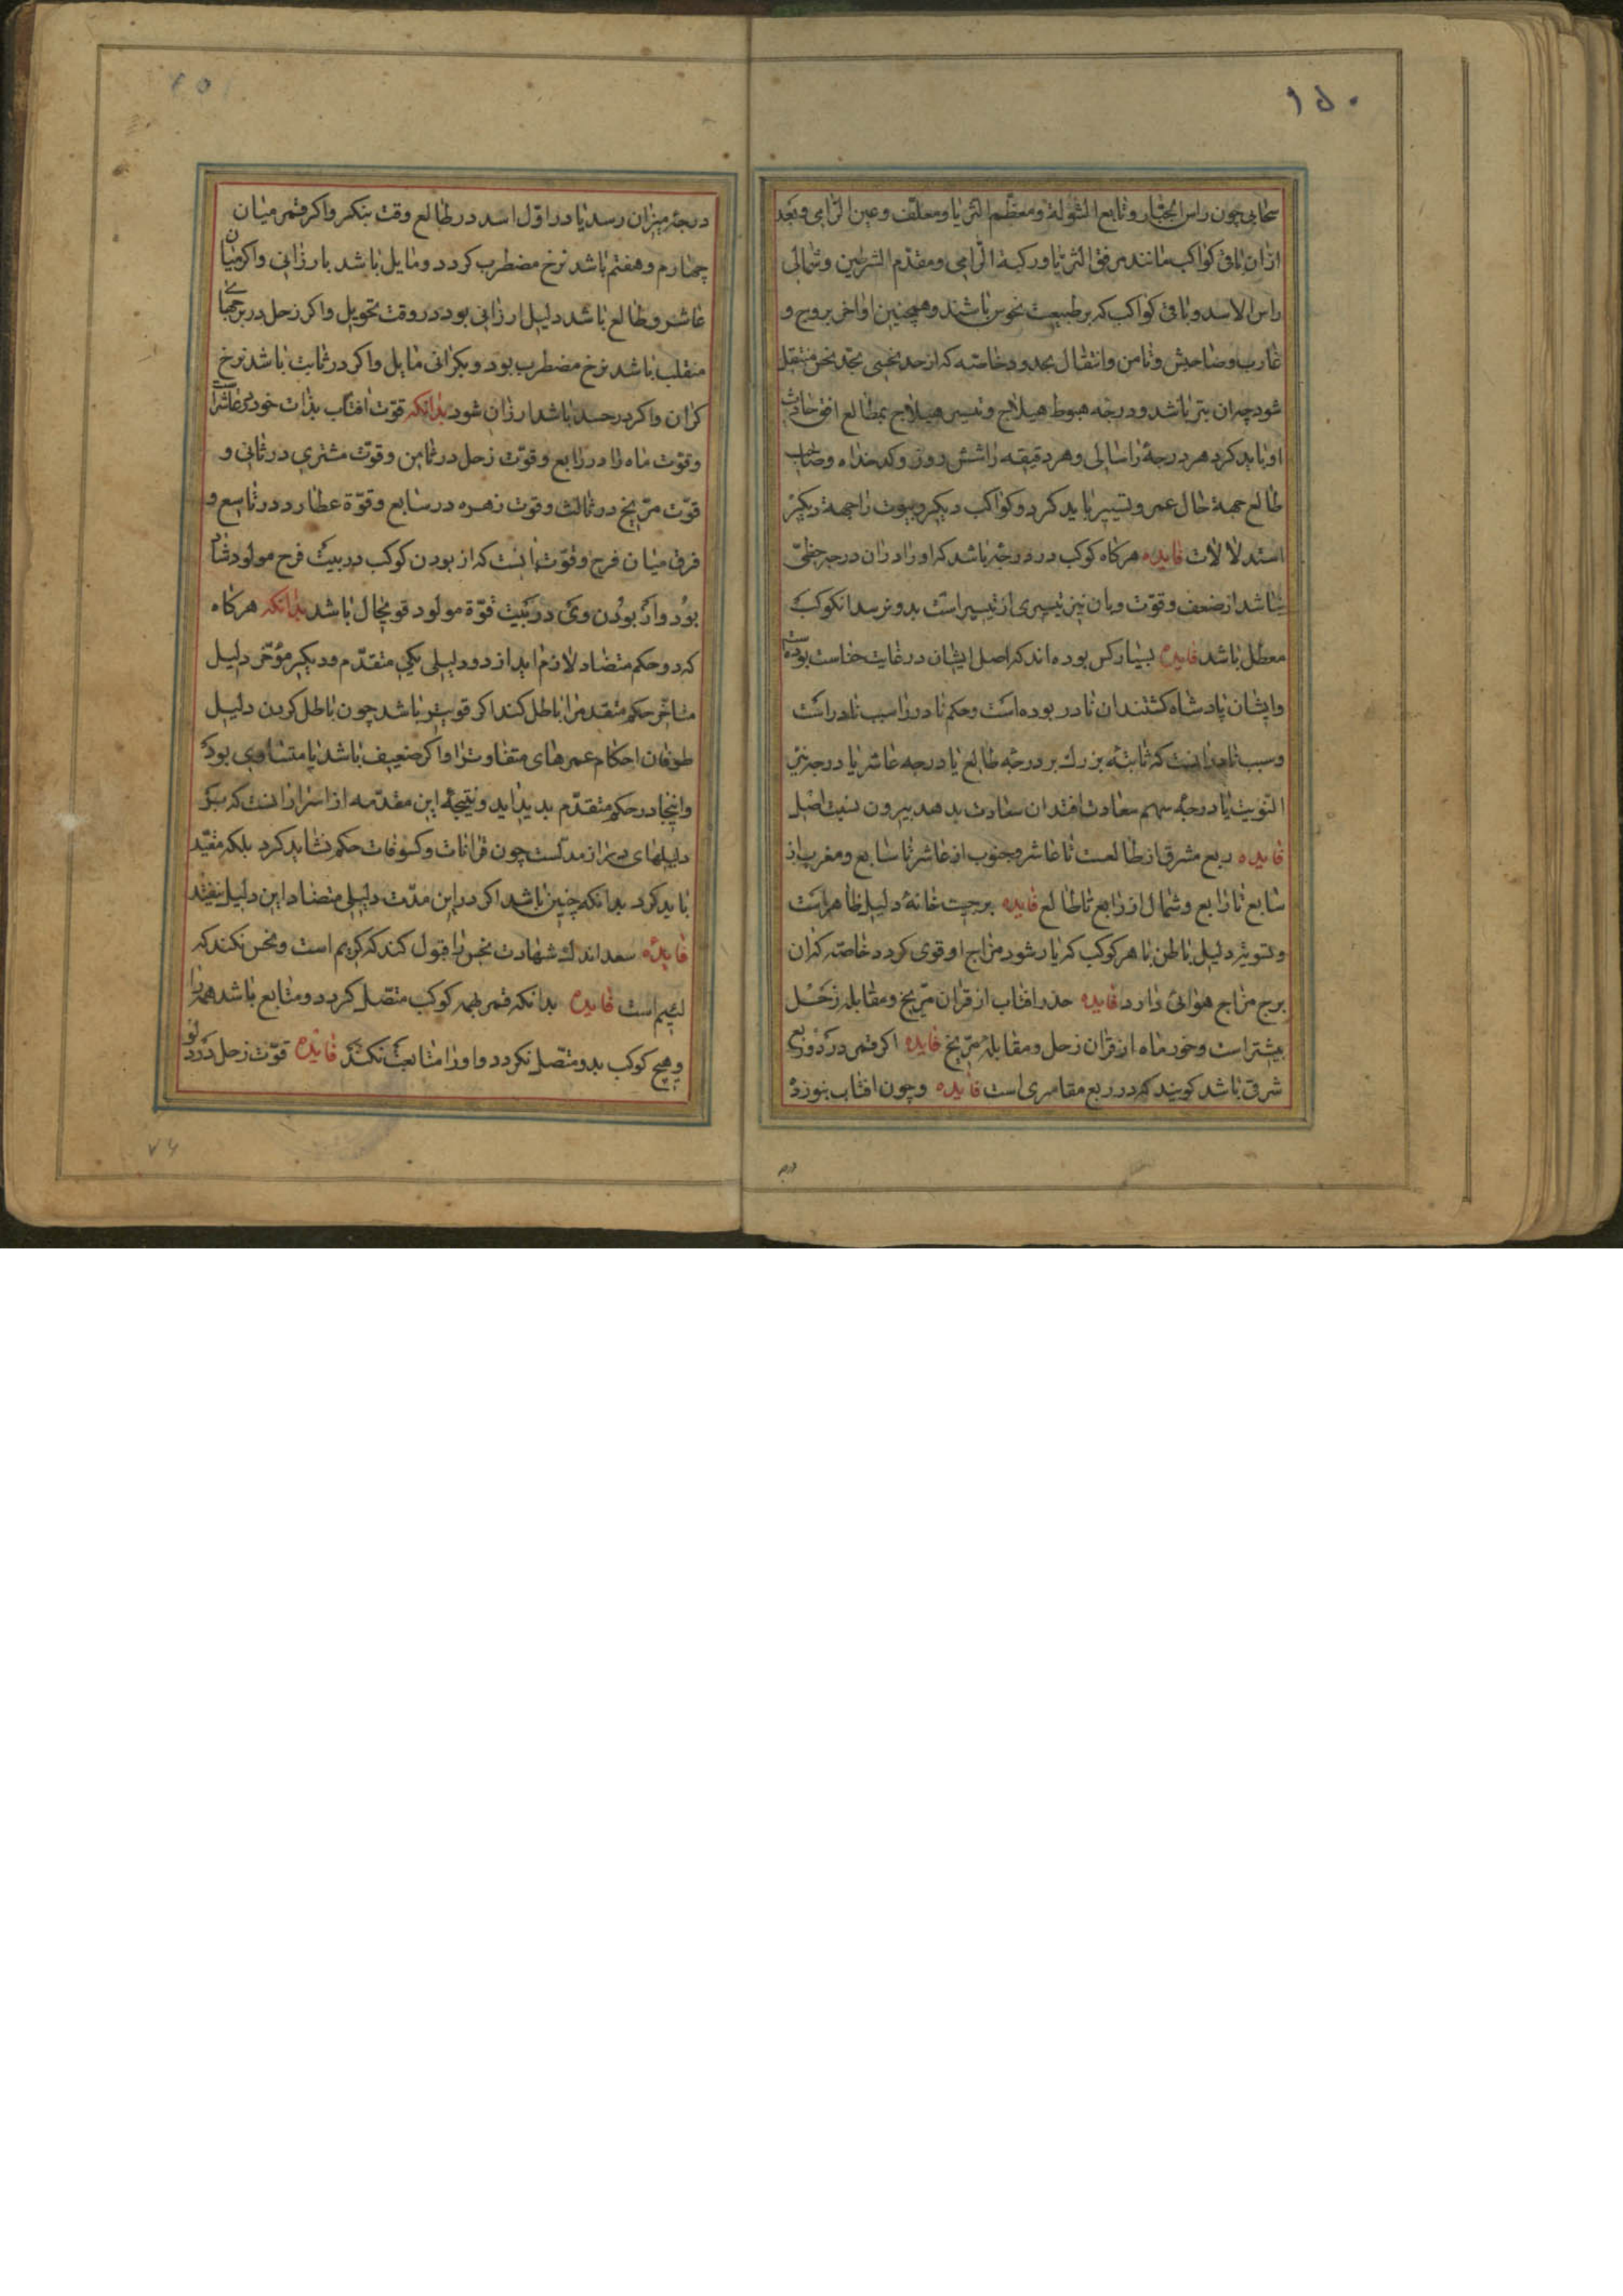 ۱۵۰
سحابی چون راس الجبار و تابع الشولة و معظم الثریا و معلف و عین الرامی و بعد
ازان باقی کواکب مانند مرفق الثریا و رکبة الرامی و مقدم الشرطین و شمالی
راس الاسد و باقی کواکب که بر طبیعت نحوس باشند و همچنین اواخر بروج و
غارب و صاحبش و ثامن و انتقال بحدود خاصه که از حد نحسی بحد نحس منتقل
شود چه ان بتر باشد و درجه هبوط هیلاج و تسییر هیلاج بمطالع افق حادث
او باید کرد هر درجۀ را سالی و هر دقیقه را شش روز و کدخداه و صاحب
طالع جهة حال عمر و تسییر باید کرد و کواکب دیکر و بیوت را جهة دیکر
استدلالات فایده هرکاه کوکب در درجۀ باشد که او را دران درجه حظی
نباشد از ضعف و قوت و بان نیز تسییری از تسییرات بدو نرسد انکوکب
معطل باشد فایده بسیار کس بوده اند که اصل ایشان در غایت خساست بوده است
و ایشان پادشاه کشتند ان نادر بوده است و حکم نادر را سبب نادر است
و سبب نادر انست که ثابتۀ بزرك بر درجۀ طالع یا درجه عاشر یا درجه نیّر
النوبت یا درجۀ سهم سعادت افتد ان سعادت بدهد بیرون نسبت اصل
فایده ربع مشرق از طالعست تا عاشر و جنوب از عاشر تا سابع و مغرب از
سابع تا رابع و شمال از رابع تا طالع فایده برجیت خانۀ دلیل ظاهر است
و تسویه دلیل باطن با هر کوکب که یار شود مزاج او قوی کردد خاصه که ان
برج مزاج هوائی دارد فایده حذر افتاب از قران مریخ و مقابله زحل
بیشتر است و حذر ماه از قران زحل و مقابله مریخ فایده اکر قمر در دو ربع
شرقی باشد کویند که در ربع مقامری است فایده و چون افتاب بنوزده
درجه
درجۀ میزان رسد یا در اول اسد در طالع وقت بنکر و اکر قمر میان
چهارم و هفتم باشد نرخ مضطرب کردد و مایل باشد بارزانی و اکر میان
عاشر و طالع باشد دلیل ارزانی بود در وقت تحویل و اکر زحل در برجهای
منقلب باشد نرخ مضطرب بود و بکرانی مایل و اکر در ثابت باشد نرخ
کران و اکر در جسد باشد ارزان شود بدانکه قوت افتاب بذات خود در عاشر است
و قوت ماه را در رابع و قوت زحل در ثامن و قوت مشتری در ثانی و
قوت مریخ در ثالث و قوت زهره در سابع و قوة عطارد در تاسع و
فرق میان فرح و قوت انست که از بودن کوکب در بیت فرح مولود شاد
بود و از بودن وی در بیت قوة مولود قویحال باشد بدانکه هرکاه
که دو حکم متضاد لازم اید از دو دلیلی یکی متقدم و دیکر مؤخر دلیل
متاخر حکم متقدم را باطل کند اکر قویتر باشد چون باطل کردن دلیل
طوفان احکام عمرهای متفاوت را و اکر ضعیف باشد یا متساوی بود
و اینجا در حکم متقدم بدید اید و نتیجۀ این مقدمه از اسرار انست که بر
دلیلهای دراز مدت چون قرانات و کسوفات حکم نشاید کرد بلکه مقید
باید کرد بدانکه چنین باشد اکر دراین مدت دلیلی متضاد این دلیل نیفتد
فایده سعد اندك شهادت نحس را قبول کند که کریم است و نحس نکند که
لئیم است فایده بدانکه قمر بهمه کوکب متصل کردد و متابع باشد همه را
و هیچ کوکب بدو متصل نکردد و او را متابعت نکند فایده قوت زحل در دلو
۷۶